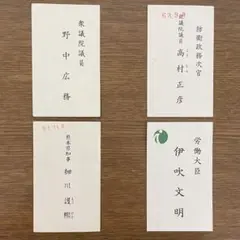 衆議院議員
野中広務
防衛政務次官
衆議院議員
高村正彦
熊本県知事
細川護熙
労働大臣
伊吹文明